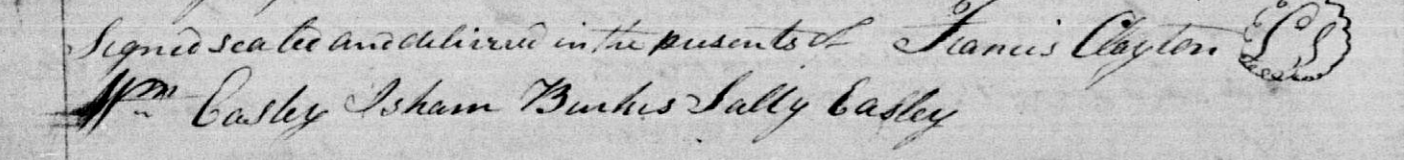 Signed sealed and delivired in the presents of Francis Clayton LS
Wm Easley Isham Burkes Sally Easley